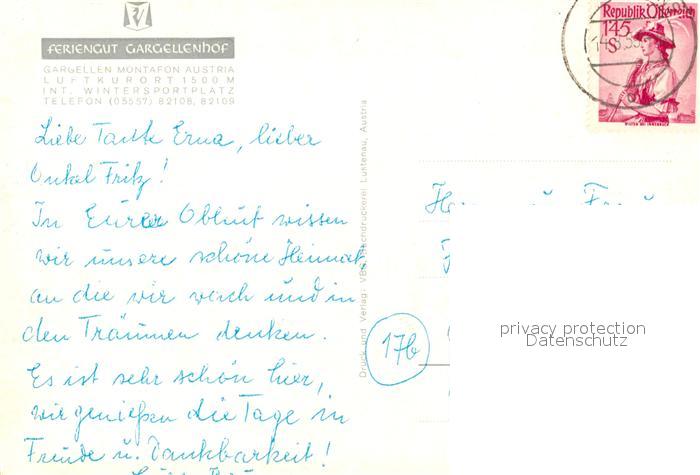 FERIENGUT GARGELLENHOF
GARGELLEN MONTAFON AUSTRIA
LUFTKURORT 1500 M
INT. WINTERSPORTPLATZ
TELEFON (05557) 82108, 82109
Liebe Tante Erna, lieber
Onkel Fritz!
In Eurer Obhut wissen
wir unsere schöne Heimat,
an die wir wach und in
den Träumen denken.
Es ist sehr schön hier,
wir genießen die Tage in
Freude u. Dankbarkeit!
Druck und Verlag: Lustenau, Austria
Republik Österreich
1·45
S
17b
privacy protection
Datenschutz